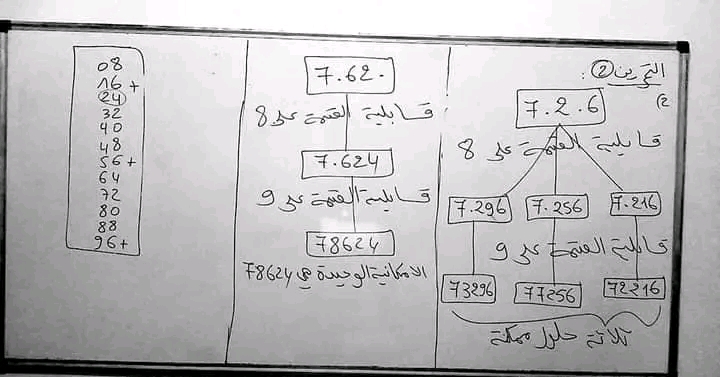 التمرين ②:
2)
7.2.6
قابلية القسمة على 8
7.296 7.256 7.216
قابلية القسمة على 9
73296 77256 72216
ثلاثة حلول ممكنة
7.62.
قابلية القسمة على 8
7.624
قابلية القسمة على 9
78624
الامكانية الوحيدة هي 78624
08
16+
24
32
40
48
56+
64
72
80
88
96+